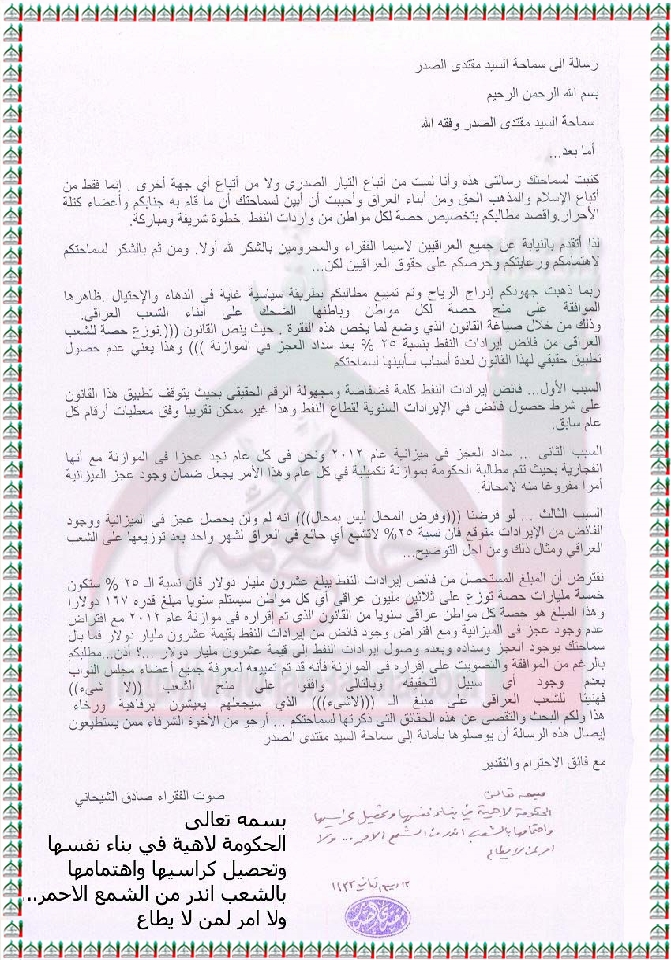 رسالة الى سماحة السيد مقتدى الصدر
بسم الله الرحمن الرحيم
سماحة السيد مقتدى الصدر وفقه الله
أما بعد...
كتبت لسماحتك رسالتي هذه وأنا لست من أتباع التيار الصدري ولا من أتباع أي جهة أخرى . إنما فقط من
أتباع الإسلام والمذهب الحق ومن أبناء العراق وأحببت أن أبين لسماحتك أن ما قام به جنابكم وأعضاء كتلة
الأحرار وأقصد مطالبكم بتخصيص حصة لكل مواطن من واردات النفط خطوة شريفة ومباركة.
لذا أتقدم بالنيابة عن جميع العراقيين لاسيما الفقراء والمحرومين بالشكر لله أولا. ومن ثم بالشكر لسماحتكم
لاهتمامكم ورعايتكم وحرصكم على حقوق العراقيين لكن...
ربما ذهبت جهودكم إدراج الرياح وتم تمييع مطالبكم بطريقة سياسية غاية في الدهاء والإحتيال. ظاهرها
الموافقة على منح حصة لكل مواطن وباطنها الضحك على أبناء الشعب العراقي.
وذلك من خلال صياغة القانون الذي وضع لما يخص هذه الفقرة . حيث ينص القانون (((.توزع حصة للشعب
العراقي من فائض إيرادات النفط بنسبة ٢٥ % بعد سداد العجز في الموازنة ))) وهذا يعني عدم حصول
تطبيق حقيقي لهذا القانون لعدة أسباب سأبينها لسماحتكم
السبب الأول... فائض إيرادات النفط كلمة فضفاضة ومجهولة الرقم الحقيقي بحيث يتوقف تطبيق هذا القانون
على شرط حصول فائض في الإيرادات السنوية لقطاع النفط وهذا غير ممكن تقريبا وفق معطيات أرقام كل
عام سابق.
السبب الثاني .. سداد العجز في ميزانية عام ٢٠١٢ ونحن في كل عام نجد عجزا في الموازنة مع أنها
انفجارية بحيث تتم مطالبة الحكومة بموازنة تكميلية في كل عام وهذا الأمر يجعل ضمان وجود عجز الميزانية
أمرا مفروغا منه لامحالة.
السبب الثالث .. لو فرضنا (((وفرض المحال ليس بمحال))) انه لم ولن يحصل عجز في الميزانية ووجود
الفائض من الإيرادات متوقع فأن نسبة ٢٥% لاتشبع أي جائع في العراق لشهر واحد بعد توزيعها على الشعب
العراقي ومثال ذلك ومن اجل التوضيح...
نفترض أن المبلغ المستحصل من فائض إيرادات النفط يبلغ عشرون مليار دولار فأن نسبة الـ ٢٥ % ستكون
خمسة مليارات حصة توزع على ثلاثين مليون عراقي أي كل مواطن سيستلم سنويا مبلغ قدره ١٦٧ دولارا
وهذا المبلغ هو حصة كل مواطن عراقي سنويا من القانون الذي تم إقراره في موازنة عام ٢٠١٢ مع افتراض
عدم وجود عجز في الميزانية ومع افتراض وجود فائض من إيرادات النفط بقيمة عشرون مليار دولار فما بال
سماحتك بوجود العجز وسداده وبعدم وصول إيرادات النفط الى قيمة عشرون مليار دولار ..؟ أذن...مطلبكم
بالرغم من الموافقة والتصويت على إقراره في الموازنة فأنه قد تم تمييعه لمعرفة جميع أعضاء مجلس النواب
بعدم وجود أي سبيل لتحقيقه وبالتالي وافقو على منح الشعب ((لا شيء))
فهنيئا للشعب العراقي على مبلغ الـ (((لاشيء))) الذي سيجعلهم يعيشون برفاهية ورخاء
هذا ولكم البحث والتقصي عن هذه الحقائق التي ذكرتها لسماحتكم ... أرجو من الأخوة الشرفاء ممن يستطيعون
إيصال هذه الرسالة أن يوصلوها بأمانة إلى سماحة السيد مقتدى الصدر
مع فائق الاحترام والتقدير
صوت الفقراء صادق الشيحاني
بسمه تعالى
الحكومة لاهية في بناء نفسها وتحصيل كراسيها
واهتمامها بالشعب اندر من الشمع الاحمر ... ولا
امر لمن لا يطاع
١٤٣٣
بسمه تعالى
الحكومة لاهية في بناء نفسها
وتحصيل كراسيها واهتمامها
بالشعب اندر من الشمع الاحمر...
ولا امر لمن لا يطاع